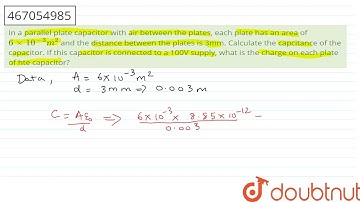 467054985
In a parallel plate capacitor with air between the plates, each plate has an area of
6 × 10⁻³m² and the distance between the plates is 3mm. Calculate the capcitance of the
capacitor. If this capacitor is connected to a 100V supply, what is the charge on each plate
of hte capacitor?
Data, A = 6×10⁻³m²
d = 3mm ⇒ 0.003m
C = Aε₀/d ⇒ 6×10⁻³ × 8.85×10⁻¹²/0.003 =
doubtnut